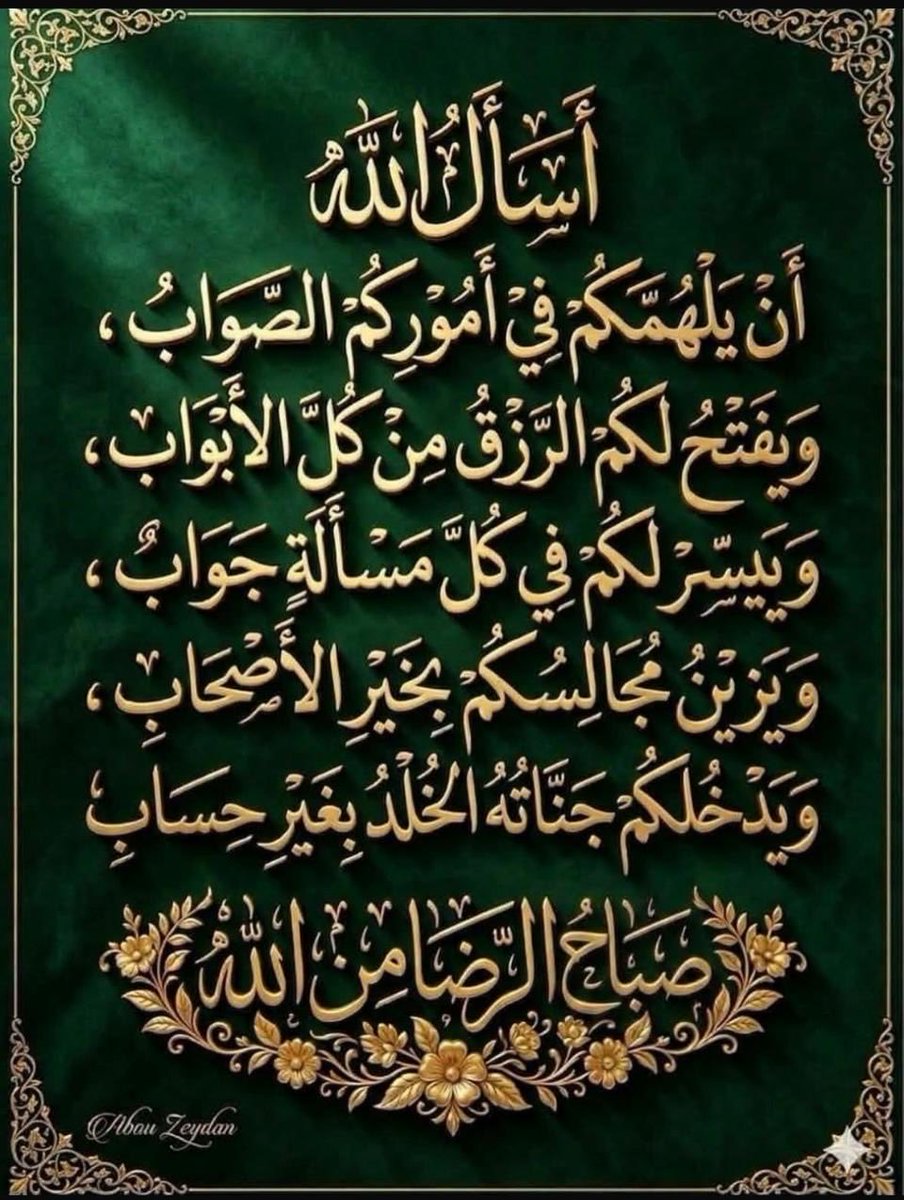 أَسَأَلُ اللَّهُ
أَنْ يَلْهُمَّكُمْ فِيْ أَمُوْرِكُمْ الصَّوَابُ ،
وَيَفَتْحُ لَكُمْ الرَّزْقُ مِنْ كُلَّ الأَبْوَابِ ،
وَيَيسّرْ لَكُمْ فِي كُلَّ مَسْأَلَةٍ جَوَابٌ ،
وَيَزيْنُ مُجَالِسُكُمْ بِخَيْرِ الأَصْحَابِ ،
وَيَدْخُلكُمْ جَنَّاتُهُ الخُلْدُ بِغَيْرِ حِسَابِ ،
صَبَاحُ الرِّضَا مِن اللَّهُ
Abou Zeydan